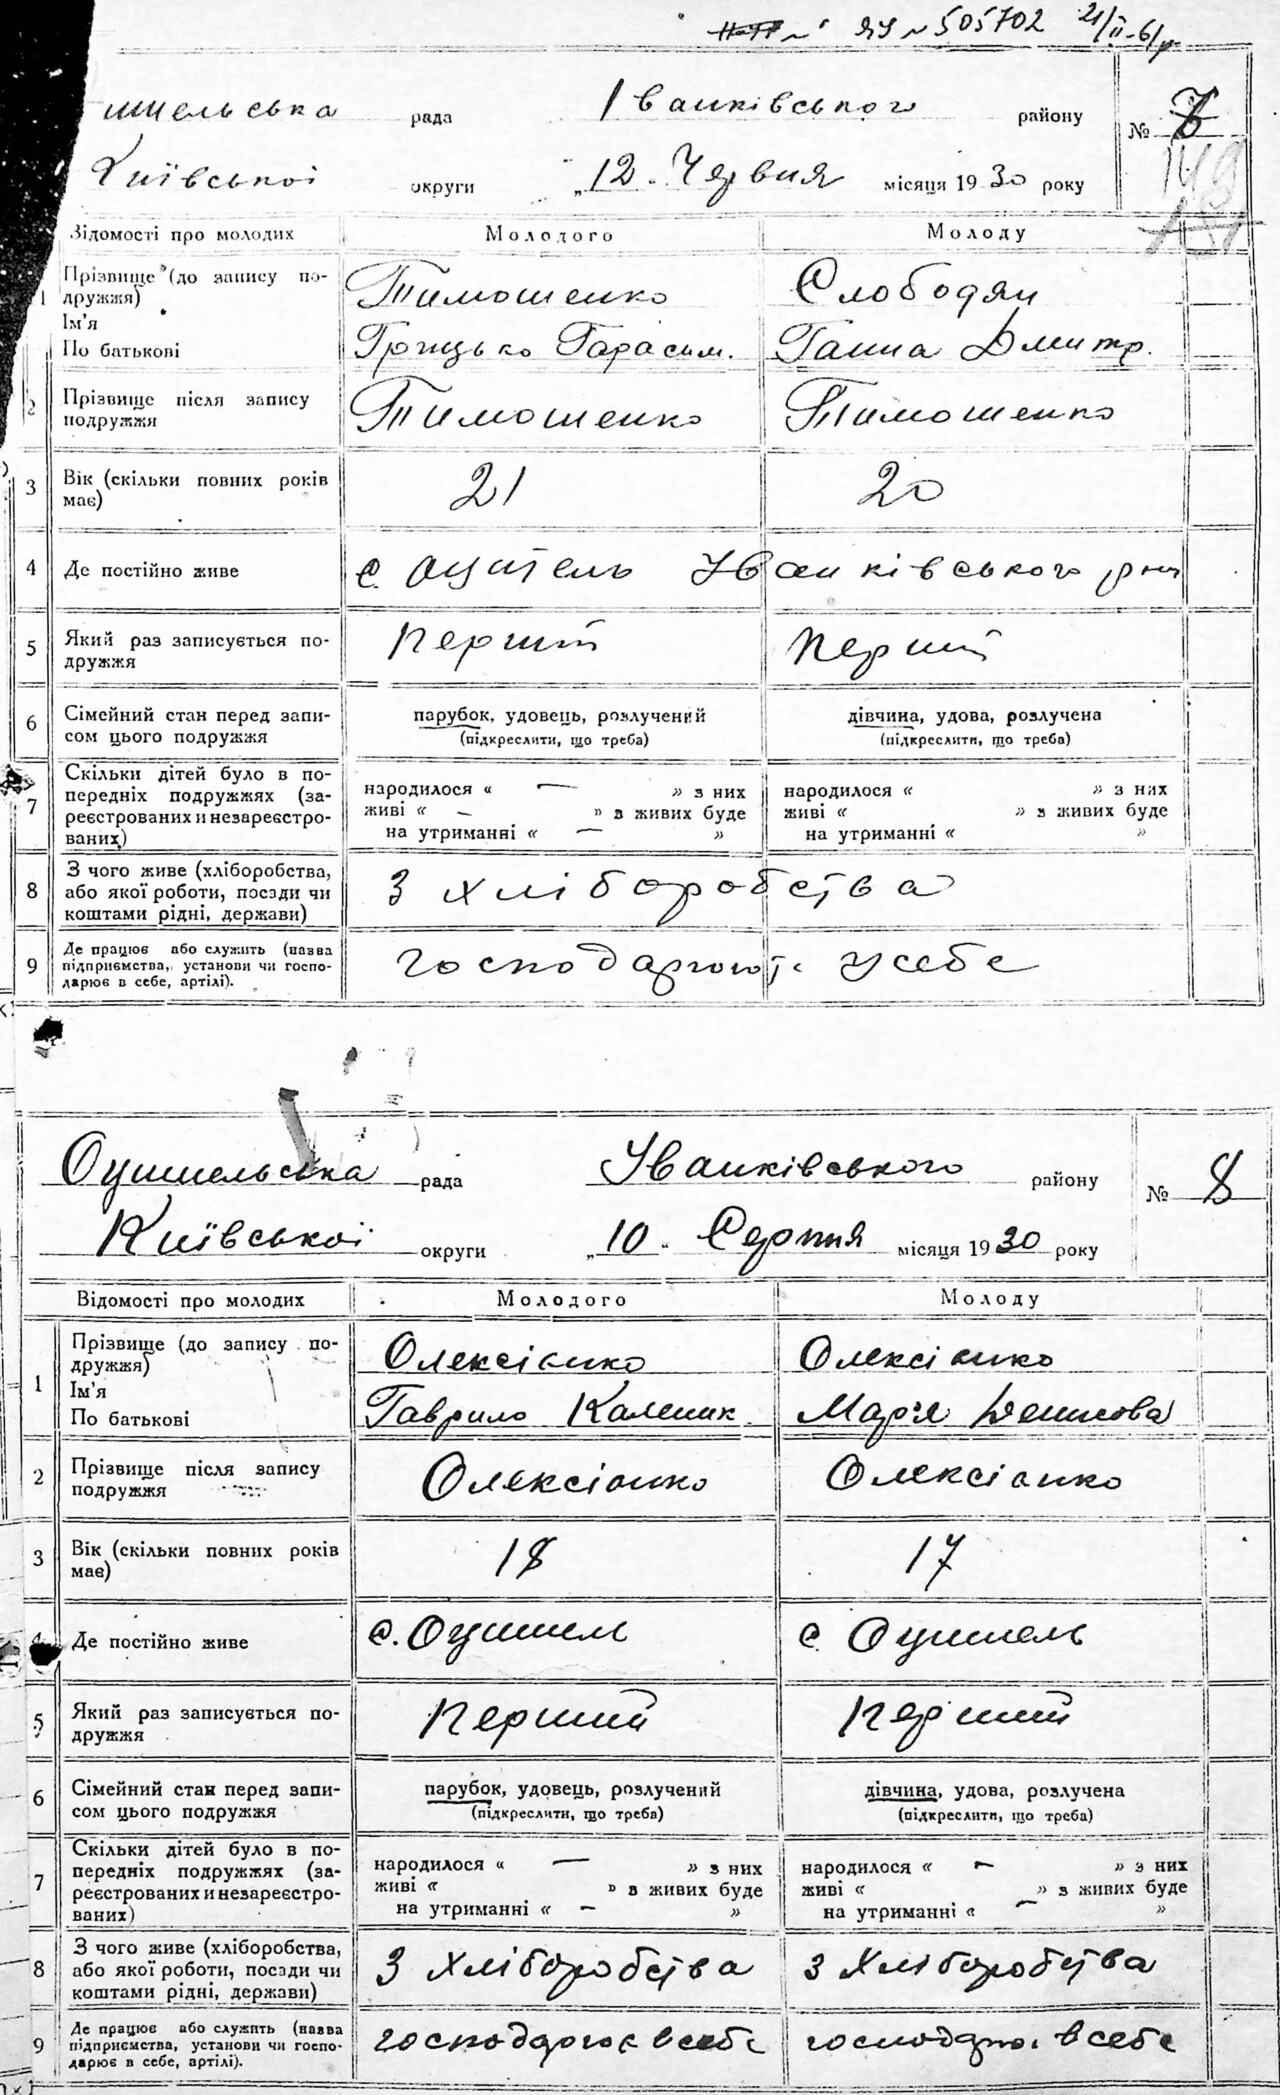 ЯУ № 505702 21/II-61р
шельська рада Іванківського району № 7
149
Київської округи „12" Червня місяця 1930 року
Відомості про молодих Молодого Молоду
1 Прізвище (до запису по-дружжя) Тимошенко Слободян
Ім'я
По батькові Грицько Гарасим. Ганна Дмитр.
2 Прізвище після запису подружжя Тимошенко Тимошенко
3 Вік (скільки повних років має) 21 20
4 Де постійно живе с Оцитель Іванківського р-ну
5 Який раз записується по-дружжя перший перший
6 Сімейний стан перед запи-сом цього подружжя парубок, удовець, розлучений (підкреслити, що треба) дівчина, удова, розлучена (підкреслити, що треба)
7 Скільки дітей було в по-передніх подружжях (за-реєстрованих и незареєстро-ваних) народилося « — » з них живі « — » з живих буде на утриманні « — » народилося « » з них живі « » з живих буде на утриманні « »
8 З чого живе (хліборобства, або якої роботи, посади чи коштами рідні, держави) З хліборобства
9 Де працює або служить (назва підприємства, установи чи госпо-дарює в себе, артілі). господарюють у себе
Оцишельська рада Іванківського району № 8
Київської округи „10" Серпня місяця 1930 року
Відомості про молодих Молодого Молоду
1 Прізвище (до запису по-дружжя) Олексієнко Олексієнко
Ім'я
По батькові Гаврило Каленик. Мар'я Денисова
2 Прізвище після запису подружжя Олексієнко Олексієнко
3 Вік (скільки повних років має) 18 17
4 Де постійно живе с. Оцишель с Оцишель
5 Який раз записується по-дружжя перший перший
6 Сімейний стан перед запи-сом цього подружжя парубок, удовець, розлучений (підкреслити, що треба) дівчина, удова, розлучена (підкреслити, що треба)
7 Скільки дітей було в по-передніх подружжях (за-реєстрованих и незареєстро-ваних) народилося « — » з них живі « » з живих буде на утриманні « — » народилося « — » з них живі « » з живих буде на утриманні « — »
8 З чого живе (хліборобства, або якої роботи, посади чи коштами рідні, держави) З хліборобства З хліборобства
9 Де працює або служить (назва підприємства, установи чи госпо-дарює в себе, артілі). господарює в себе господарює в себе